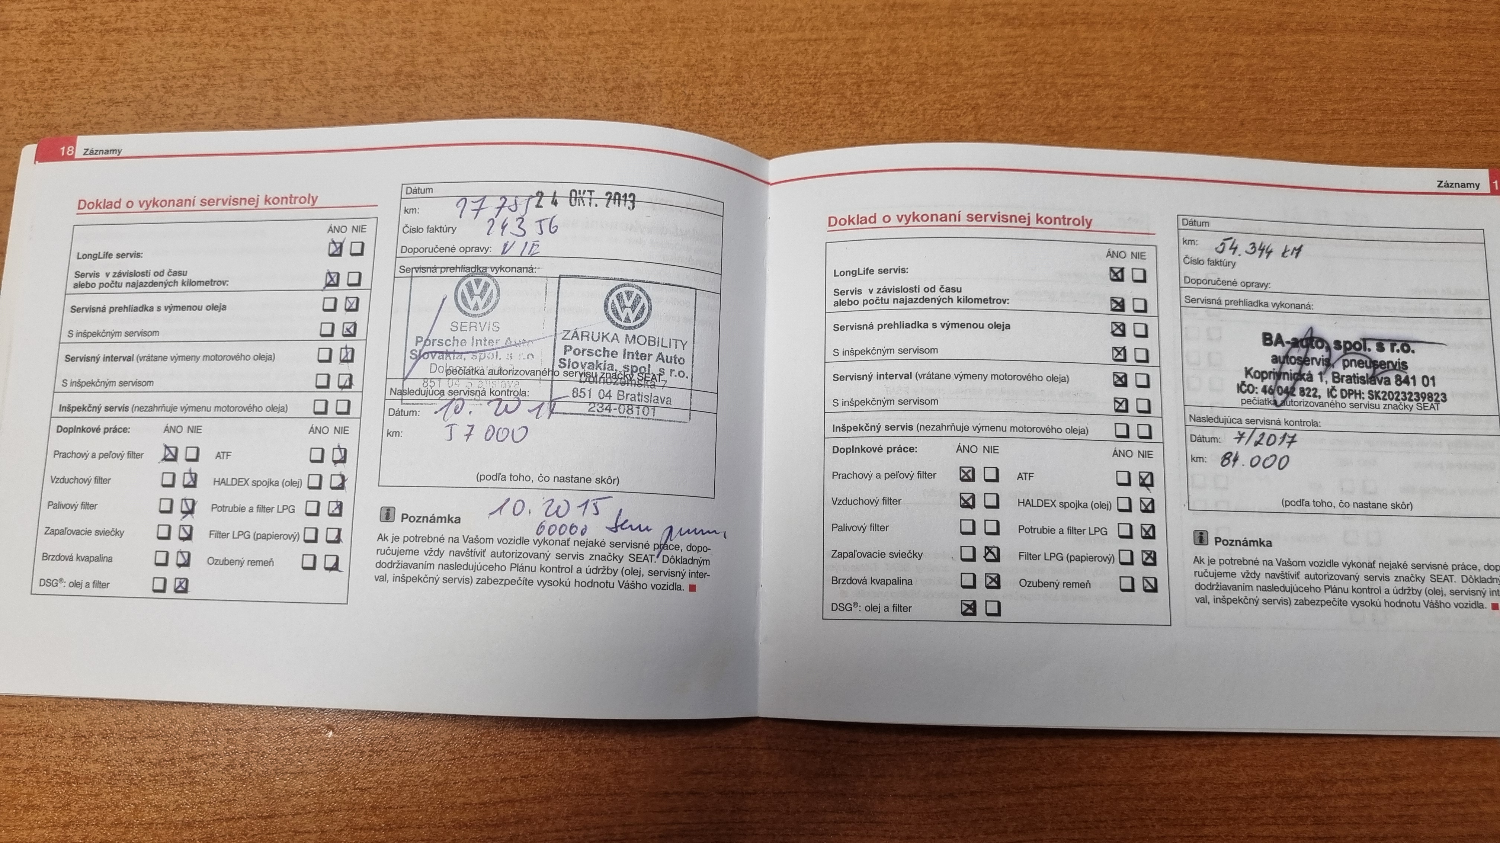 18 Záznamy
Doklad o vykonaní servisnej kontroly
ÁNO NIE
LongLife servis:
Servis v závislosti od času
alebo počtu najazdených kilometrov:
Servisná prehliadka s výmenou oleja
S inšpekčným servisom
Servisný interval (vrátane výmeny motorového oleja)
S inšpekčným servisom
Inšpekčný servis (nezahrňuje výmenu motorového oleja)
Doplnkové práce: ÁNO NIE ÁNO NIE
Prachový a peľový filter ATF
Vzduchový filter HALDEX spojka (olej)
Palivový filter Potrubie a filter LPG
Zapaľovacie sviečky Filter LPG (papierový)
Brzdová kvapalina Ozubený remeň
DSG®: olej a filter
Dátum 24 OKT. 2013
km:
Číslo faktúry 24356
Doporučené opravy: NIE
Servisná prehliadka vykonaná:
SERVIS
Porsche Inter Auto
Slovakia, spol. s r.o.
851 04 Bratislava
ZÁRUKA MOBILITY
Porsche Inter Auto
Slovakia, spol. s r.o.
Dolnozemská 7
851 04 Bratislava
234-08101
pečiatka autorizovaného servisu značky SEAT
Nasledujúca servisná kontrola:
Dátum:
km: 57000
(podľa toho, čo nastane skôr)
10. 2015
60000
Poznámka
Ak je potrebné na Vašom vozidle vykonať nejaké servisné práce, dopo-
ručujeme vždy navštíviť autorizovaný servis značky SEAT. Dôkladným
dodržiavaním nasledujúceho Plánu kontrol a údržby (olej, servisný inter-
val, inšpekčný servis) zabezpečíte vysokú hodnotu Vášho vozidla.
Záznamy 1
Doklad o vykonaní servisnej kontroly
ÁNO NIE
LongLife servis:
Servis v závislosti od času
alebo počtu najazdených kilometrov:
Servisná prehliadka s výmenou oleja
S inšpekčným servisom
Servisný interval (vrátane výmeny motorového oleja)
S inšpekčným servisom
Inšpekčný servis (nezahrňuje výmenu motorového oleja)
Doplnkové práce: ÁNO NIE ÁNO NIE
Prachový a peľový filter ATF
Vzduchový filter HALDEX spojka (olej)
Palivový filter Potrubie a filter LPG
Zapaľovacie sviečky Filter LPG (papierový)
Brzdová kvapalina Ozubený remeň
DSG®: olej a filter
Dátum
km: 54.344 KM
Číslo faktúry
Doporučené opravy:
Servisná prehliadka vykonaná:
BA-auto, spol. s r.o.
autoservis, pneuservis
Koprivnická 1, Bratislava 841 01
IČO: 46 042 822, IČ DPH: SK2023239823
pečiatka autorizovaného servisu značky SEAT
Nasledujúca servisná kontrola:
Dátum: 7/2017
km: 84.000
(podľa toho, čo nastane skôr)
Poznámka
Ak je potrebné na Vašom vozidle vykonať nejaké servisné práce, dop
ručujeme vždy navštíviť autorizovaný servis značky SEAT. Dôkladn
dodržiavaním nasledujúceho Plánu kontrol a údržby (olej, servisný int
val, inšpekčný servis) zabezpečíte vysokú hodnotu Vášho vozidla.